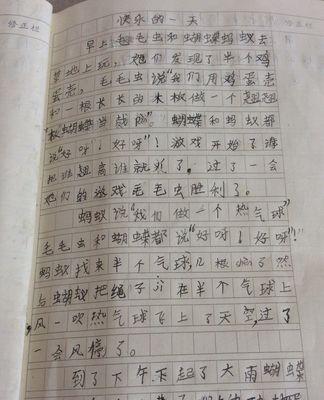 快乐的一天
修正栏
修正栏
早上毛毛虫和蝴蝶蚂蚁去
草地上玩，她们发现了半个鸡
蛋壳，毛毛虫说“我们用鸡蛋壳
和一根长长的木板做一个翘翘
板蝴蝶当裁陪。蝴蝶和蚂蚁都
说“好呀！好呀”！游戏开始了谁
把谁翘高谁就
了，过了一会
她们的游戏毛毛虫胜利了。
蚂蚁说“我们做一个热气球”
毛毛虫和蝴蝶都说“好呀！好呀”！
蚂蚁找来半个气球，几根绳子然
把绳子
在半个气球上
风一吹热气球飞上了天空，过了
一会风停了。
到了下午，下起了大雨蝴蝶